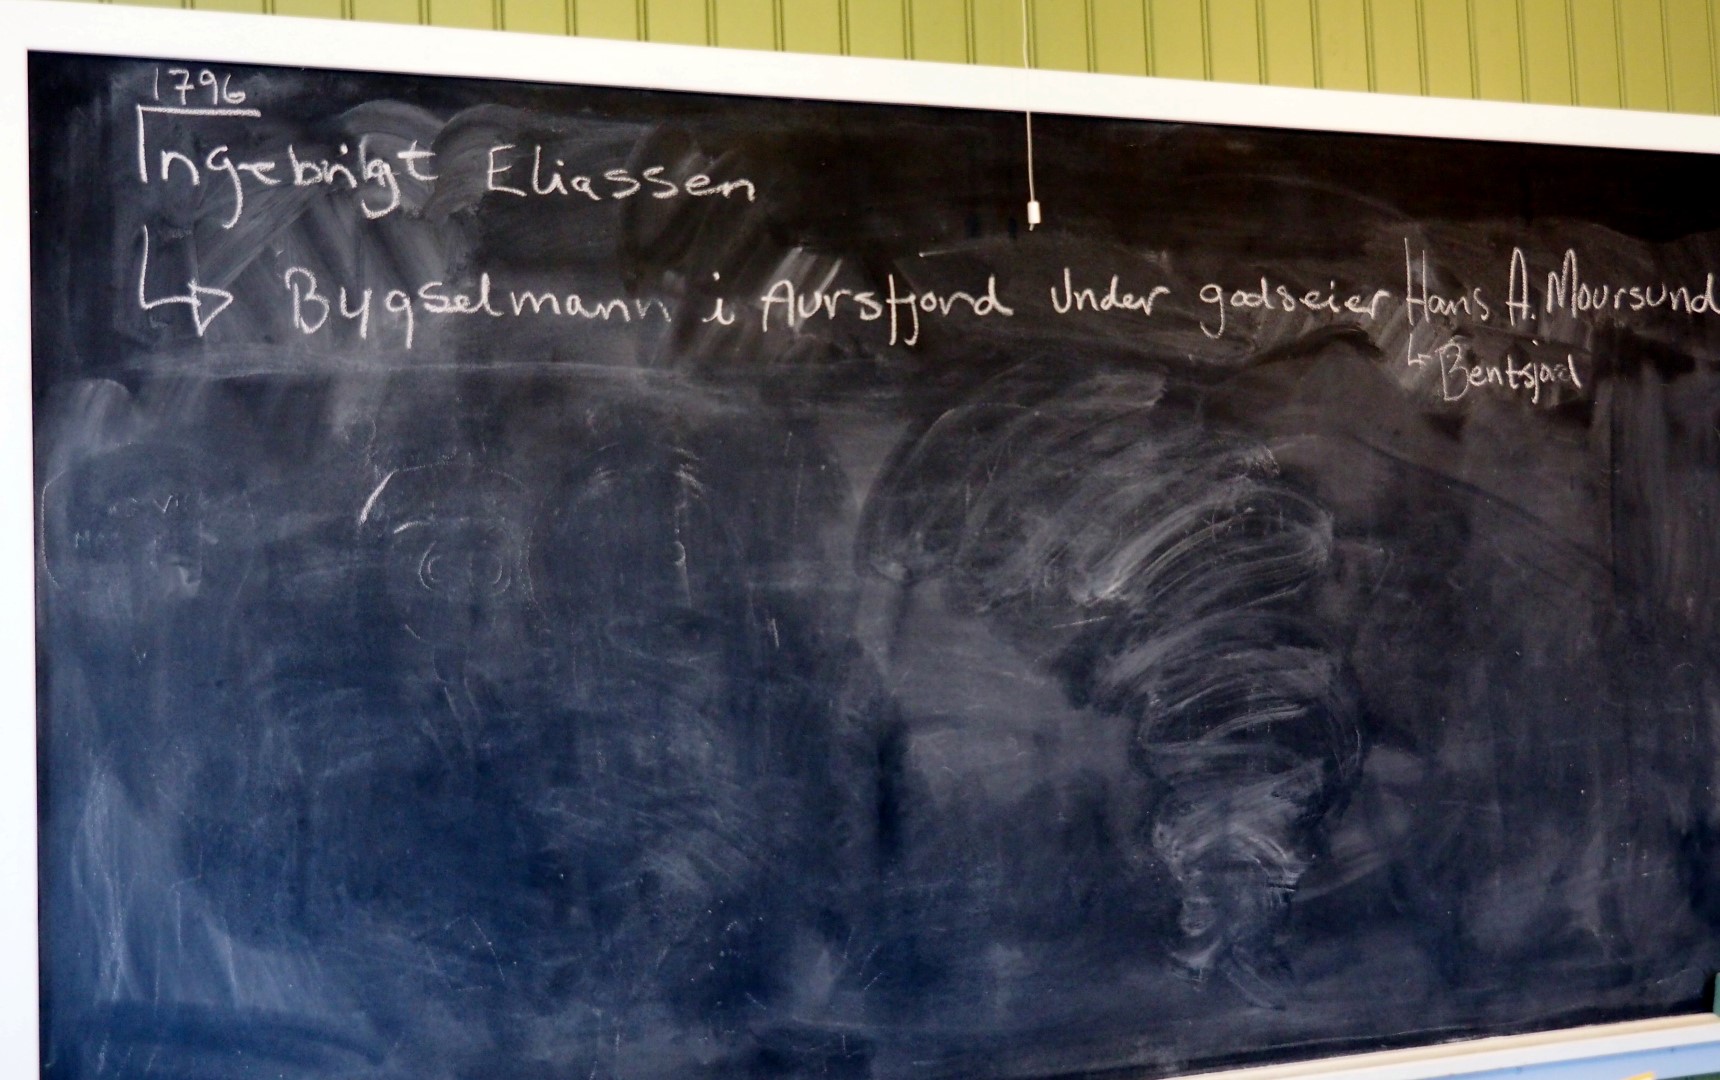 1796
Ingebrigt Eliassen
↳ Bygselmann i Aursfjord under godseier Hans A. Moursund
↳ Bentsjord